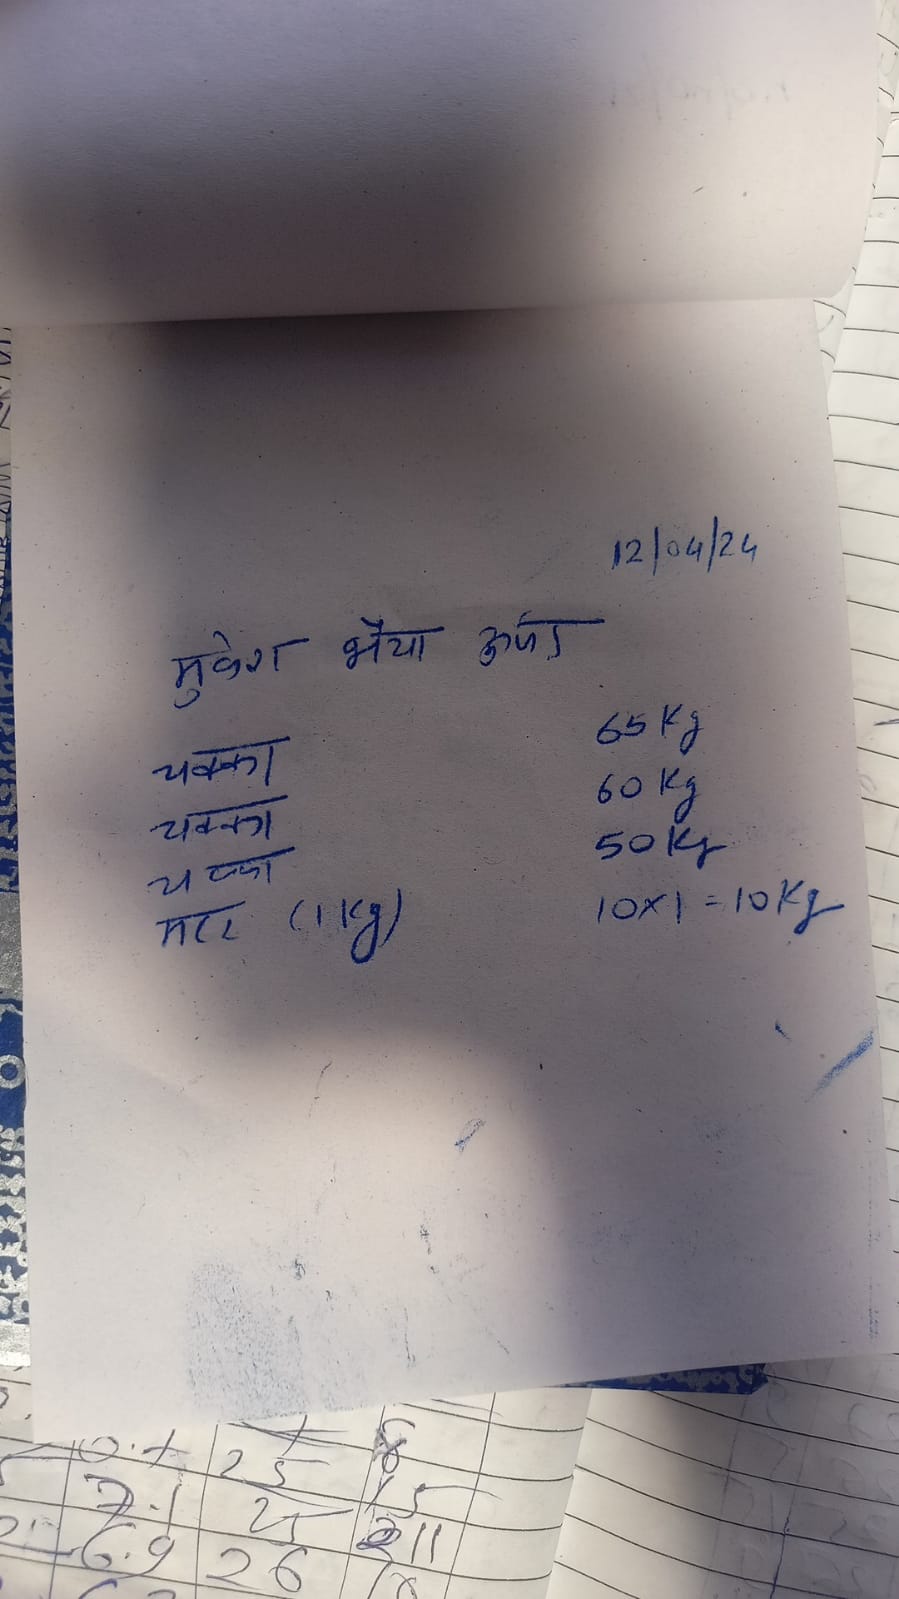 12/04/24
मुकेश भैया
चक्का 65 Kg
चक्का 60 Kg
चक्का 50 Kg
मटर (1 Kg) 10×1 = 10 Kg
25
7.1 25 15
6.9 26 11